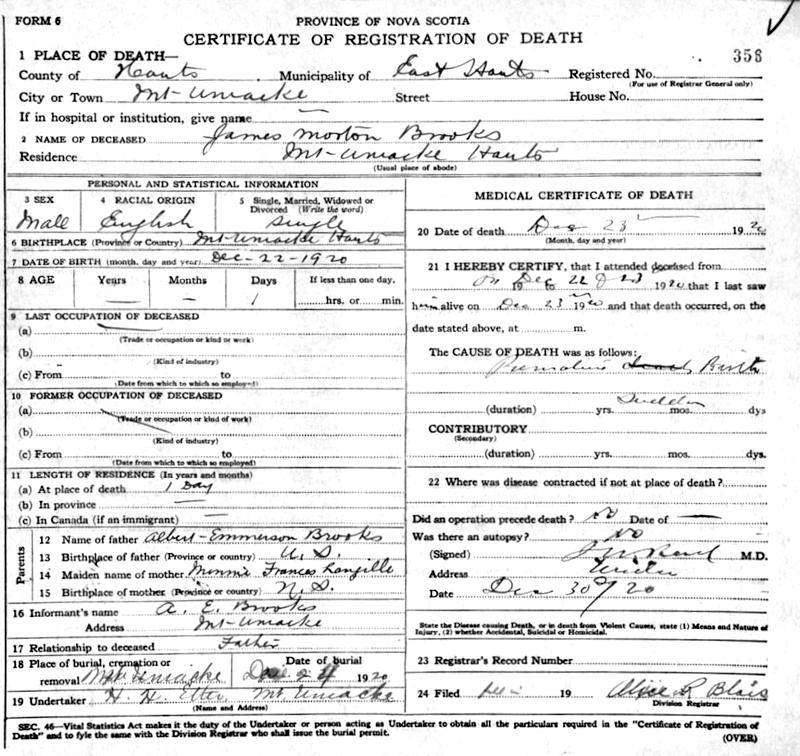 FORM 6
PROVINCE OF NOVA SCOTIA
CERTIFICATE OF REGISTRATION OF DEATH
358
1 PLACE OF DEATH—
County of Hants Municipality of East Hants Registered No.
(For use of Registrar General only)
City or Town Mt-Uniacke Street House No.
If in hospital or institution, give name —
2 NAME OF DECEASED James Morton Brooks
Residence Mt-Uniacke Hants
(Usual place of abode)
PERSONAL AND STATISTICAL INFORMATION
3 SEX 4 RACIAL ORIGIN 5 Single, Married, Widowed or Divorced (Write the word)
Male English Single
6 BIRTHPLACE (Province or Country) Mt-Uniacke Hants
7 DATE OF BIRTH (month, day and year) Dec-22-1920
8 AGE Years Months Days If less than one day,
— — 1 hrs. or min.
9 LAST OCCUPATION OF DECEASED
(a) —
(Trade or occupation or kind or work)
(b)
(Kind of industry)
(c) From to
(Date from which to which so employed)
10 FORMER OCCUPATION OF DECEASED
(a)
(Trade or occupation or kind of work)
(b)
(Kind of industry)
(c) From to
(Date from which to which so employed)
11 LENGTH OF RESIDENCE (In years and months)
(a) At place of death 1 Day
(b) In province —
(c) In Canada (if an immigrant) —
Parents
12 Name of father Albert-Emmerson Brooks
13 Birthplace of father (Province or country)
14 Maiden name of mother Minnie Frances Langille
15 Birthplace of mother (Province or country) N.S.
16 Informant's name A. E. Brooks
Address Mt-Uniacke
17 Relationship to deceased Father
18 Place of burial, cremation or removal Mt Uniacke Date of burial Dec 24 1920
19 Undertaker H. H. Etter Mt Uniacke
(Name and Address)
MEDICAL CERTIFICATE OF DEATH
20 Date of death Dec 23 1920
(Month, day and year)
21 I HEREBY CERTIFY, that I attended deceased from
on Dec 22 & 23 19 to 1920 that I last saw
him alive on Dec 23 1920 and that death occurred, on
date stated above, at m.
The CAUSE OF DEATH was as follows:
Premature Birth
Sudden
(duration) yrs. mos. dys
CONTRIBUTORY
(Secondary)
(duration) yrs. mos. dys.
22 Where was disease contracted if not at place of death?
Did an operation precede death? No Date of —
Was there an autopsy? No
(Signed) M.D.
Address
Date Dec 30 20
State the Disease causing Death, or in death from Violent Causes, state (1) Means and Nature of Injury, (2) whether Accidental, Suicidal or Homicidal.
23 Registrar's Record Number
24 Filed 19 Alice R Blois
Division Registrar
SEC. 46—Vital Statistics Act makes it the duty of the Undertaker or person acting as Undertaker to obtain all the particulars required in the "Certificate of Registration of
Death" and to fyle the same with the Division Registrar who shall issue the burial permit.
(OVER)